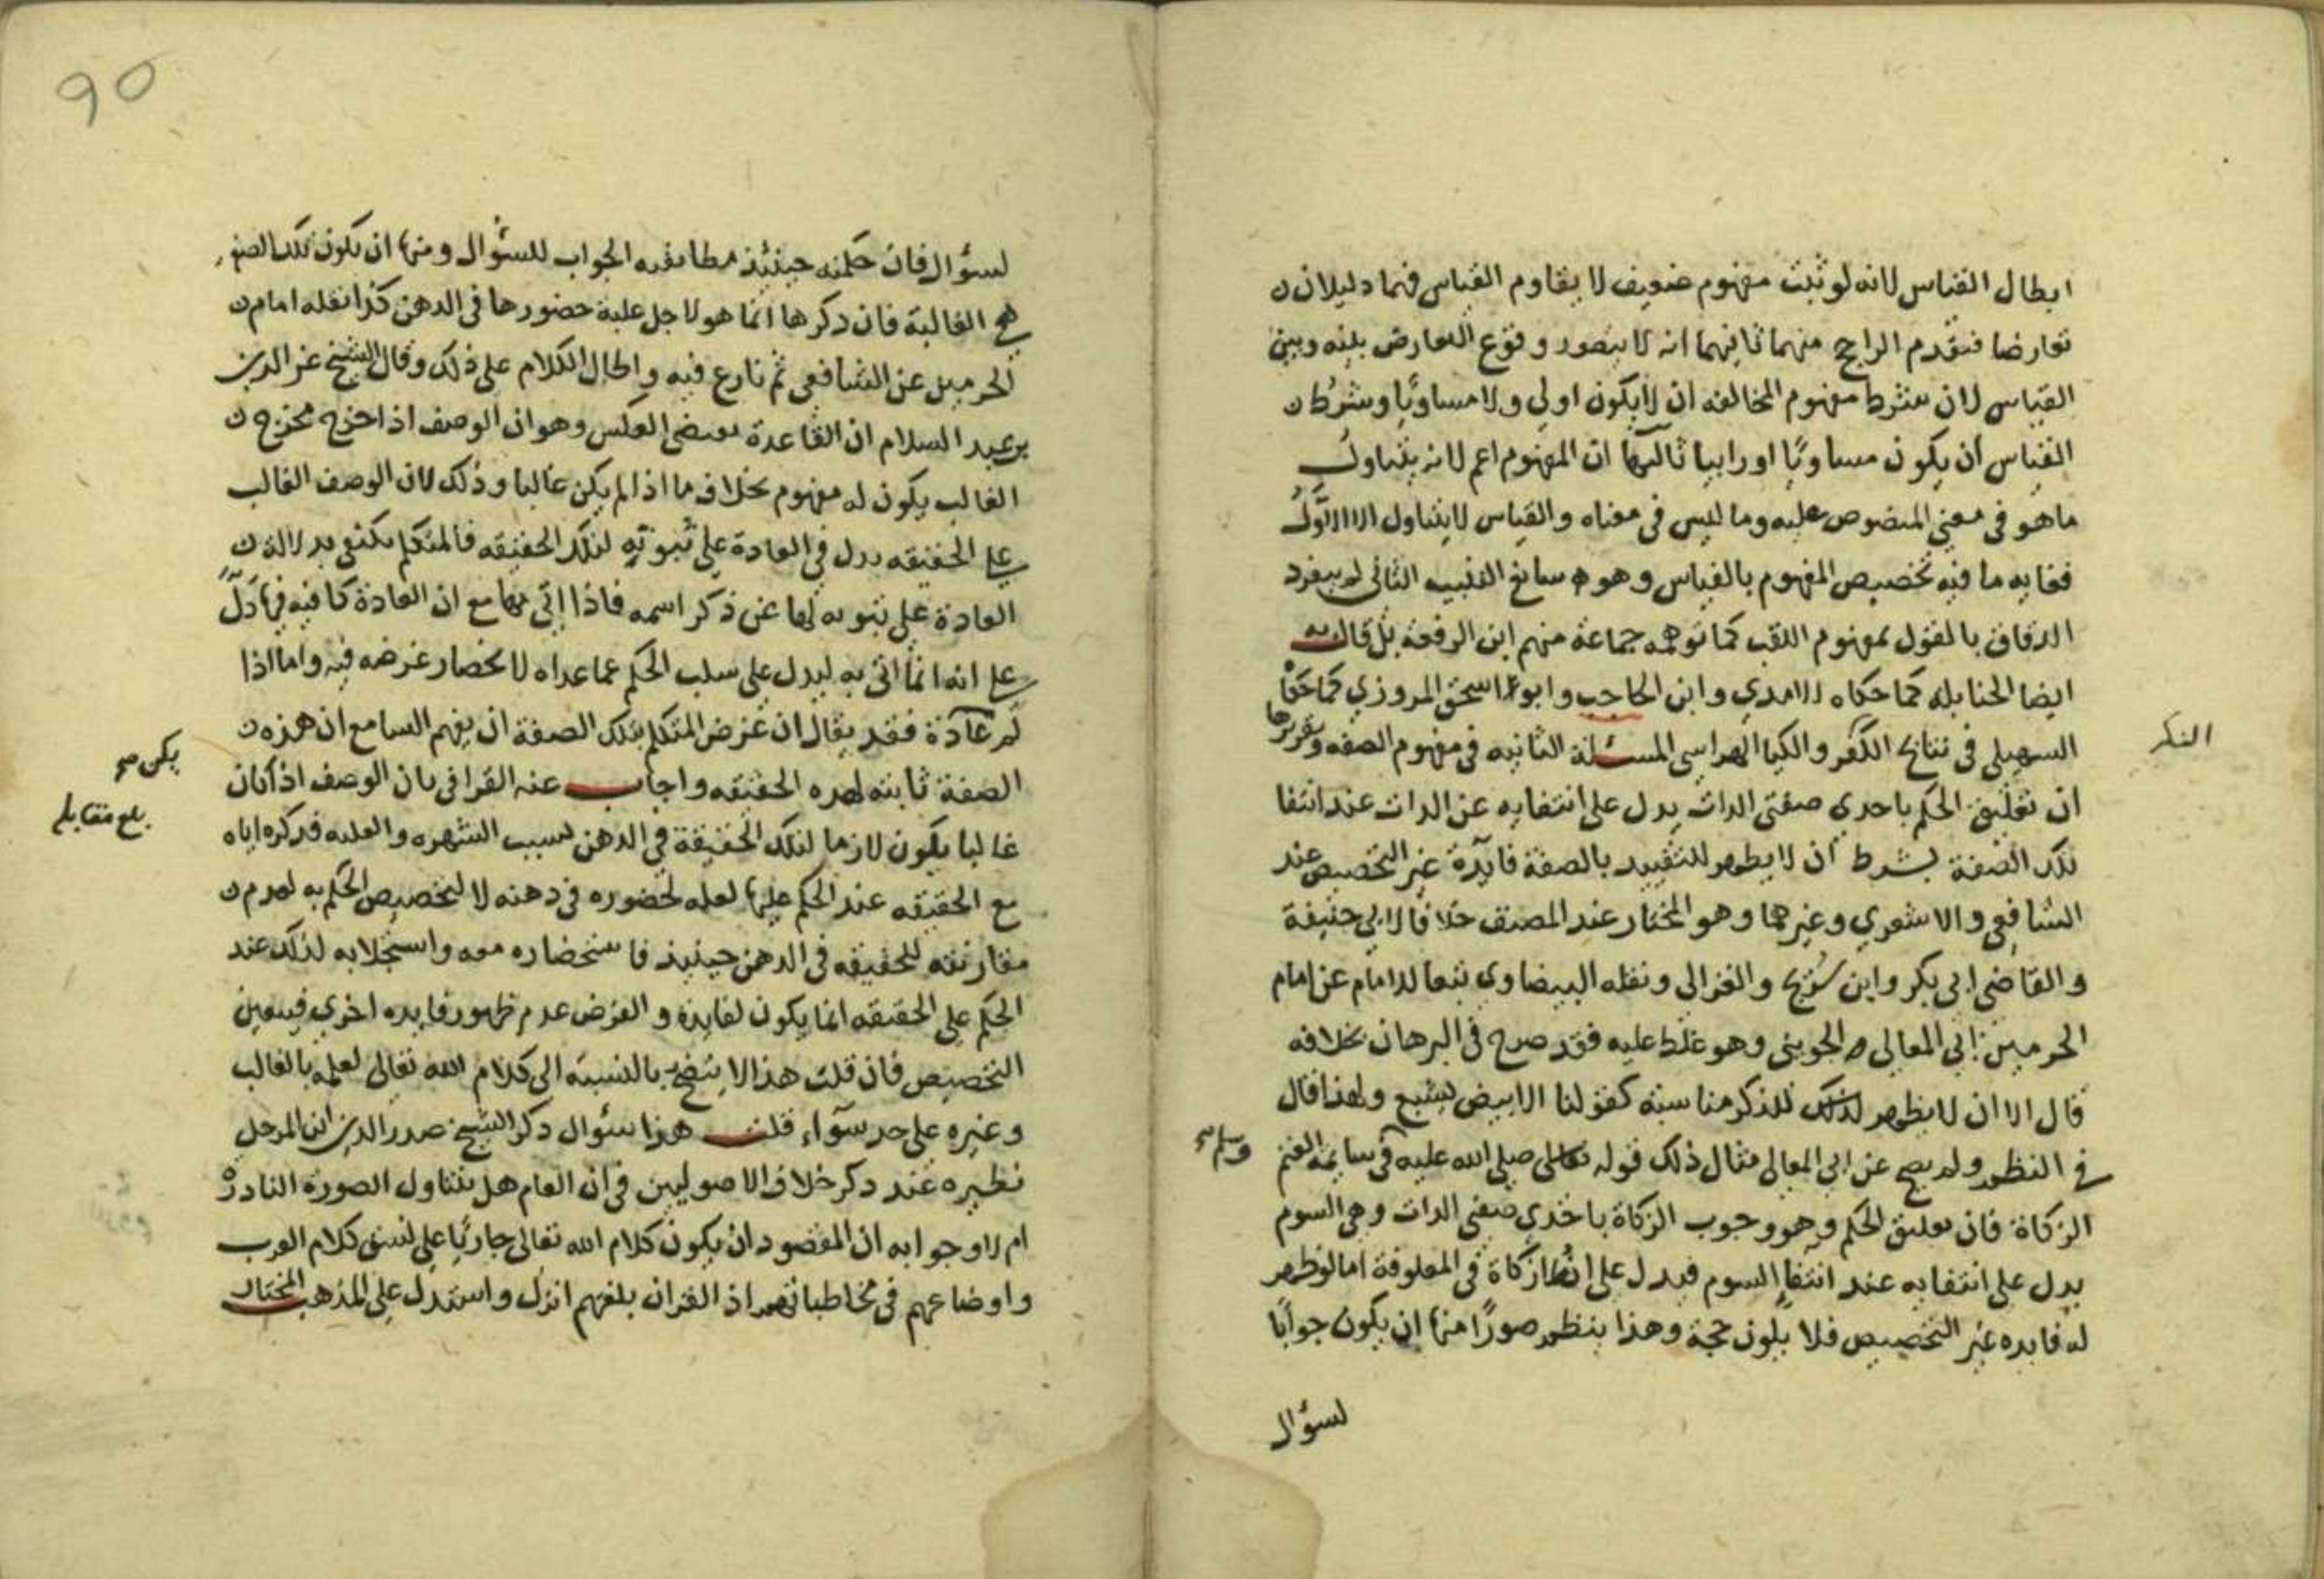 ابطال القياس لانه لو ثبت مفهوم ضعيف لا يقاوم القياس فهما دليلان
تعارضا فنقدم الراجح منهما ثانيهما انه لا يتصور وقوع التعارض بينه وبين
القياس لان شرط مفهوم المخالفه ان لا يكون اولي ولا مساويًا وشرط
القياس ان يكون مساويًا او رابيا ثالثها ان المفهوم اعم لانه يتناول
ماهو في معنى المنصوص عليه وما ليس في معناه والقياس لا يتناول الا الاول
فغايه ما فيه تخصيص المفهوم بالقياس وهو سايغ التنبيه الثاني لم ينفرد
الدقاق بالقول بمفهوم اللقب كما توهمه جماعة منهم ابن الرفعة بل قال به
ايضا الحنابله كما حكاه الامدي وابن الحاجب وابو اسحق المروزي كما حكاه
السهيلي في نتايج الفكر والكيا الهراسي المسئلة الثانيه في مفهوم الصفه وتقريرها
الفكر
ان تعليق الحكم باحدى صفتي الذات يدل على انتفايه عن الذات عند انتفا
تلك الصفة بشرط ان لا يظهر للتقييد بالصفة فايدة غير التخصيص عند
الشافعي والاشعري وغيرهما وهو المختار عند المصنف خلافا لابي حنيفة
والقاضي ابي بكر وابن سريج والغزالي ونقله البيضاوي تبعا للامام عن امام
الحرمين ابي المعالي الجويني وهو غلط عليه فقد صرح في البرهان بخلافه
قال الا ان لا يظهر لذلك للذكر مناسبة كقولنا الابيض يشبع ولهذا قال
في النظم ولم يصح عن ابي المعالي مثال ذلك قوله صلى الله عليه في سايمة الغنم
وسلم صح
الزكاة فان تعليق الحكم وهو وجوب الزكاة باحدي صفتي الذات وهي السوم
يدل على انتفايه عند انتفا السوم فيدل على انتفا زكاة في المعلوفة اما لو ظهر
له فايده غير التخصيص فلا يكون حجة وهذا ينظم صورًا منها ان يكون جوابًا
لسؤال
90
لسؤال فان حكمته حينئذ مطابقه الجواب للسؤال ومنها ان تكون تلك الصفه
هي الغالبة فان ذكرها انما هو لاجل غلبة حضورها في الذهن كذا نقله امام
الحرمين عن الشافعي ثم نازع فيه واطال الكلام على ذلك وقال الشيخ عز الدين
بن عبد السلام ان القاعدة تقتضي العكس وهو ان الوصف اذا خرج مخرج
الغالب يكون له مفهوم بخلاف ما اذا لم يكن غالبا وذلك لان الوصف الغالب
على الحقيقه يدل في العادة على ثبوته لتلك الحقيقه فالمتكلم يكتفي بدلالة
العادة على ثبوته لها عن ذكر اسمه فاذا اتي بها مع ان العادة كافيه فيها دل
على انه انما اتى به ليدل على سلب الحكم عما عداه لانحصار غرضه فيه واما اذا
لم عادة فقد يقال ان غرض المتكلم بتلك الصفة ان يفهم السامع ان هذه
يكن صح
الصفة ثابته لهذه الحقيقه واجاب عنه القرافي بان الوصف اذا كان
بلغ مقابله
غالبا يكون لازما لتلك الحقيقة في الذهن لسبب الشهره والغلبه فذكره اياه
مع الحقيقه عند الحكم عليها لعله لحضوره في ذهنه لا لتخصيص الحكم به لعدم
مقارنته للحقيقه في الذهن حينيذ فاستحضاره معه واستجلابه لذلك عند
الحكم على الحقيقه انما يكون لفايدة والغرض عدم ظهور فايده اخرى فيتعين
التخصيص فان قلت هذا لا يتضح بالنسبة الى كلام الله تعالى لعلمه بالغالب
وغيره على حد سوآء قلت هذا سؤال ذكر الشيخ صدر الدين ابن المرحل
نظيره عند ذكر خلاف الاصوليين في ان العام هل يتناول الصورة النادرة
ام لا وجوابه ان المقصود ان يكون كلام الله تعالى جاريًا على نسق كلام العرب
واوضاعهم في مخاطباتهم اذ القران بلغتهم انزل واستدل على المذهب المختار